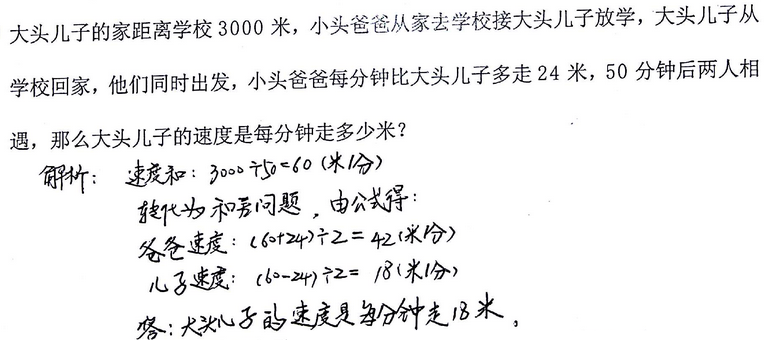 大头儿子的家距离学校 3000 米，小头爸爸从家去学校接大头儿子放学，大头儿子从
学校回家，他们同时出发，小头爸爸每分钟比大头儿子多走 24 米，50 分钟后两人相
遇，那么大头儿子的速度是每分钟走多少米？
解析： 速度和：3000÷50=60（米/分）
转化为和差问题，由公式得：
爸爸速度：（60+24）÷2=42（米/分）
儿子速度：（60-24）÷2=18（米/分）
答：大头儿子的速度是每分钟走18米。